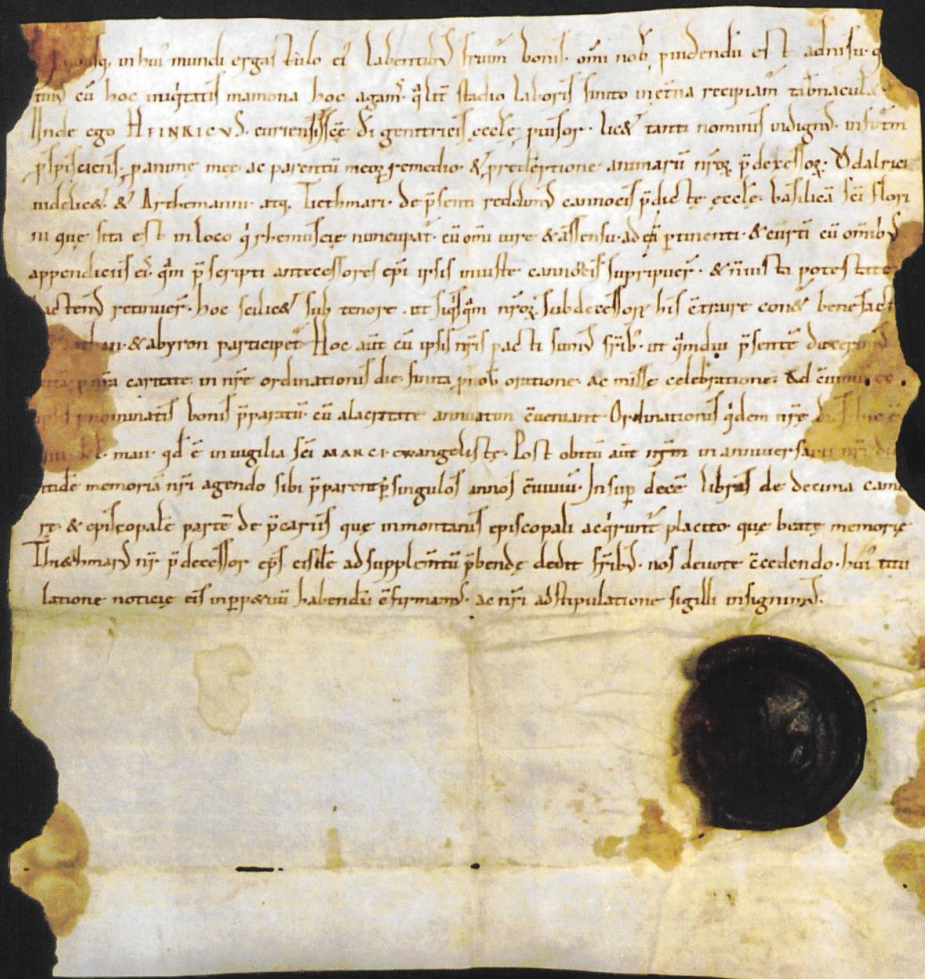 in huī mundi ergastulo ei labentibꝰ fruim̄ bonis· om̄i nob̄ puidendū est adnisu·
cū hoc iniq̇tatis mamona hoc agam̄· q̄lit̄ stadio laboris finito in et̄na recipiam̄ tab̄nacula
Vnde ego HEINRICVS· curiensis sc̄ę· dī genitricis ęcclę· puisor· lic& tanti nominis indignꝰ·
p anime meę ac parentū meoꝝ remedio· & redēptione animarū nr̄oꝝ p̄dexessoꝝ· Ódalrici
uidelic&· & Arthemanni· atq̨ Tiethmari· de p̄senti reddimꝰ cannoēis p̄dictę ęcclę· basilicā sc̄i flori
ni quę sita est in loco q̇ rhemuscię nuncupat̄· cū om̄i iure & assensu· ad eā ptinenti· & curti cū om̄ibꝰ
appendiciis ei· q̄m p̄scripti antecessores ep̄i ipsis iniuste cannoēis supripuer̄· & iniusta potestate
actenꝰ retinuer̄· hoc scilic& sub tenore· ut siq̇sq̄m nr̄oꝝ subdecessoꝝ his c̄traire con& benefact
& abyron participet· Hoc aūt cū ipsis nr̄is pacti sumꝰ fr̄ibꝰ· ut q̄mdiu p̄sentē duxerimꝰ
p nr̄a caritate· in nr̄ę ordinationis die· finita p nob̄ oratione· ac missę celebratione· ad
p̄nominatis bonis p̄paratū· cū alacritate annuatim c̄ueniant· Ordinationis q̇dem nr̄ę
kl· maii· qd̄ ē in uigilia sc̄i MARCI· ewangelistę· Post obitū aūt nr̄m in anniuersario nr̄i
itidē memoriā nr̄i agendo sibi p̄parent p singulos annos c̄uiuiū· Insup decē libras de decima cam
rę· & episcopalē partē de p̄cariis quę in montanis episcopali acq̇runt̄ placito· quę beatę memorię
Thiethmarꝰ nr̄ p̄decessor ep̄s eisdē ad supplem̄tū p̄bendę dedit fr̄ibꝰ· nos deuote c̄cedendo· huiꝰ titu
latione noticię eis in pp&uū habendū c̄firmamꝰ· ac nr̄i adstipulatione sigilli insignimꝰ·